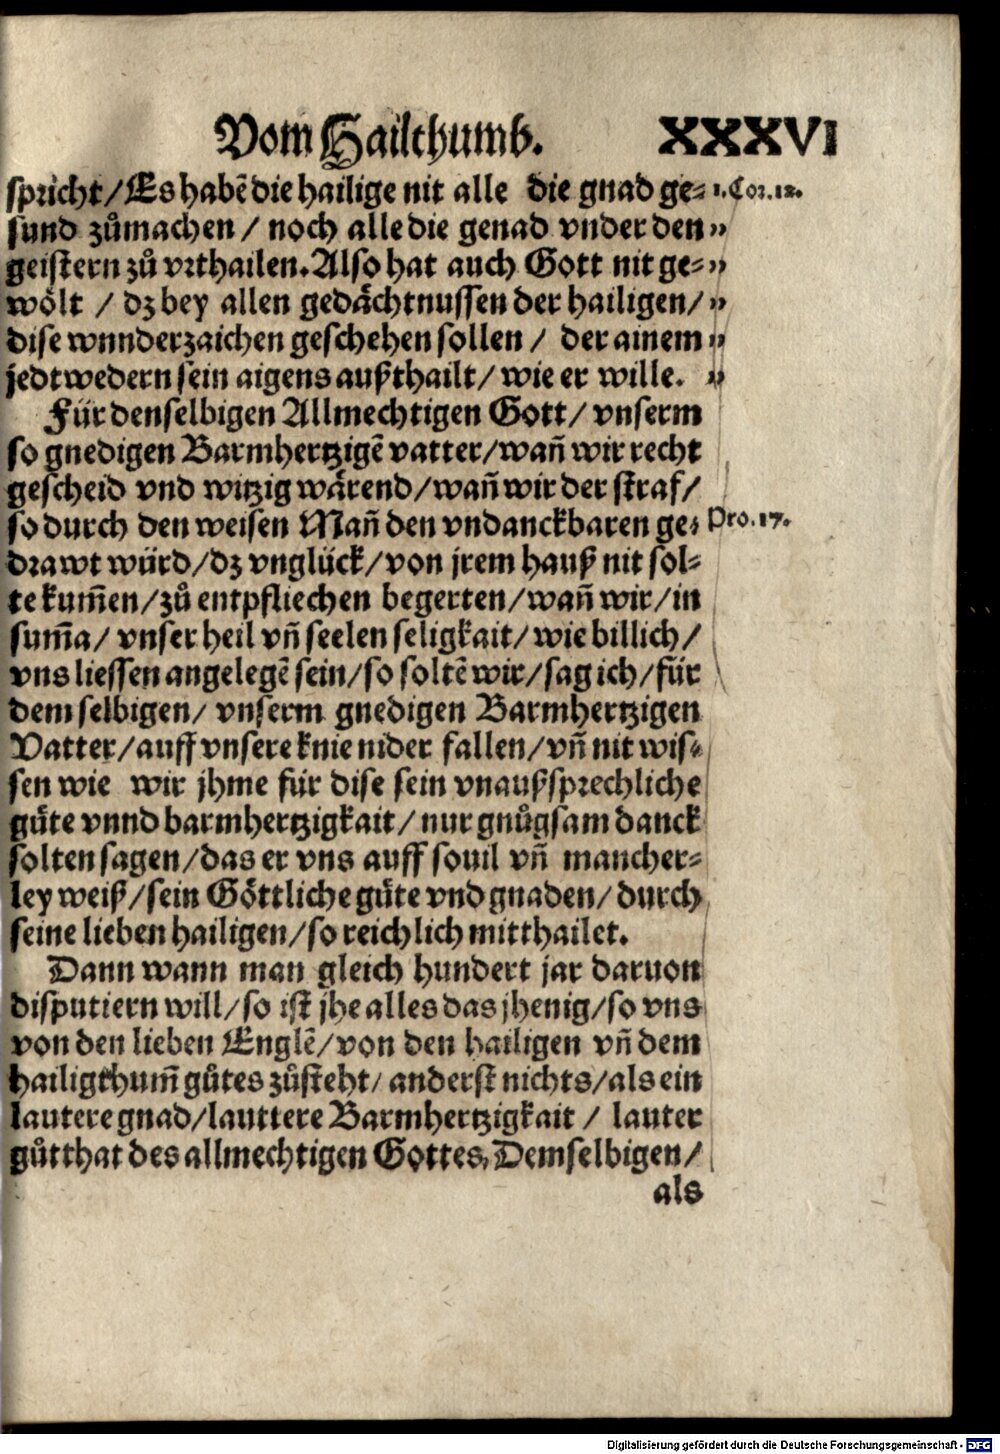 Vom Hailthumb. XXXVI
spricht/Es habẽ die hailige nit alle die gnad ge⸗ 1.Cor.12.
sund zůmachen / noch alle die genad vnder den »
geistern zů vrthailen. Also hat auch Gott nit ge⸗ »
wölt / dz bey allen gedächtnussen der hailigen/ »
dise wnnderzaichen geschehen sollen / der ainem »
jedtwedern sein aigens außthailt/ wie er wille. »
Für denselbigen Allmechtigen Gott/ vnserm
so gnedigen Barmhertzigẽ vatter/wañ wir recht
gescheid vnd witzig wärend/wañ wir der straf/
so durch den weisen Mañ den vndanckbaren ge⸗ Pro.17.
drawt würd/dz vnglück/von jrem hauß nit sol⸗
te kum̃en/zů entpfliechen begerten/wañ wir/in
sum̃a/ vnser heil vñ seelen seligkait/ wie billich/
vns liessen angelegẽ sein/so soltẽ wir/sag ich/für
dem selbigen/ vnserm gnedigen Barmhertzigen
Vatter/auff vnsere knie nider fallen/vñ nit wis⸗
sen wie wir jhme für dise sein vnaußsprechliche
güte vnnd barmhertzigkait/ nur gnůgsam danck
solten sagen/das er vns auff souil vñ mancher⸗
ley weiß/sein Göttliche güte vnd gnaden/ durch
seine lieben hailigen/so reichlich mitthailet.
Dann wann man gleich hundert jar daruon
disputiern will/so ist jhe alles das jhenig/so vns
von den lieben Englẽ/von den hailigen vñ dem
hailigthum̃ gůtes zůsteht/ anderst nichts/als ein
lautere gnad/lauttere Barmhertzigkait / lauter
gůtthat des allmechtigen Gottes, Demselbigen/
als
Digitalisierung gefördert durch die Deutsche Forschungsgemeinschaft - DFG